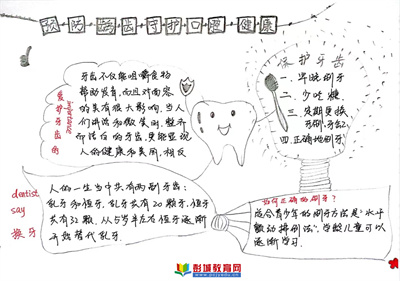 预防龋齿守护口腔健康
牙齿不仅能咀嚼食物
帮助发音,而且对面容
的美有很大影响。当人
们讲话和微笑时,整齐
而洁白的牙齿,更能显现
人的健康和美丽,相反
爱护牙齿的
importance
保护牙齿
一.早晚刷牙
二.少吃糖
三.定期更换
牙刷,牙膏
四.正确地刷牙
dentist
say
换牙
人的一生当中共有两副牙齿:
乳牙和恒牙,乳牙共有20颗,恒牙
共有32颗,从6岁半左右恒牙逐渐
开始替代乳牙.
为何正确的刷牙?
适合青少年的刷牙方法是"水平
颤动拂刷法",学龄儿童可以
逐渐学习.
彭城教育网